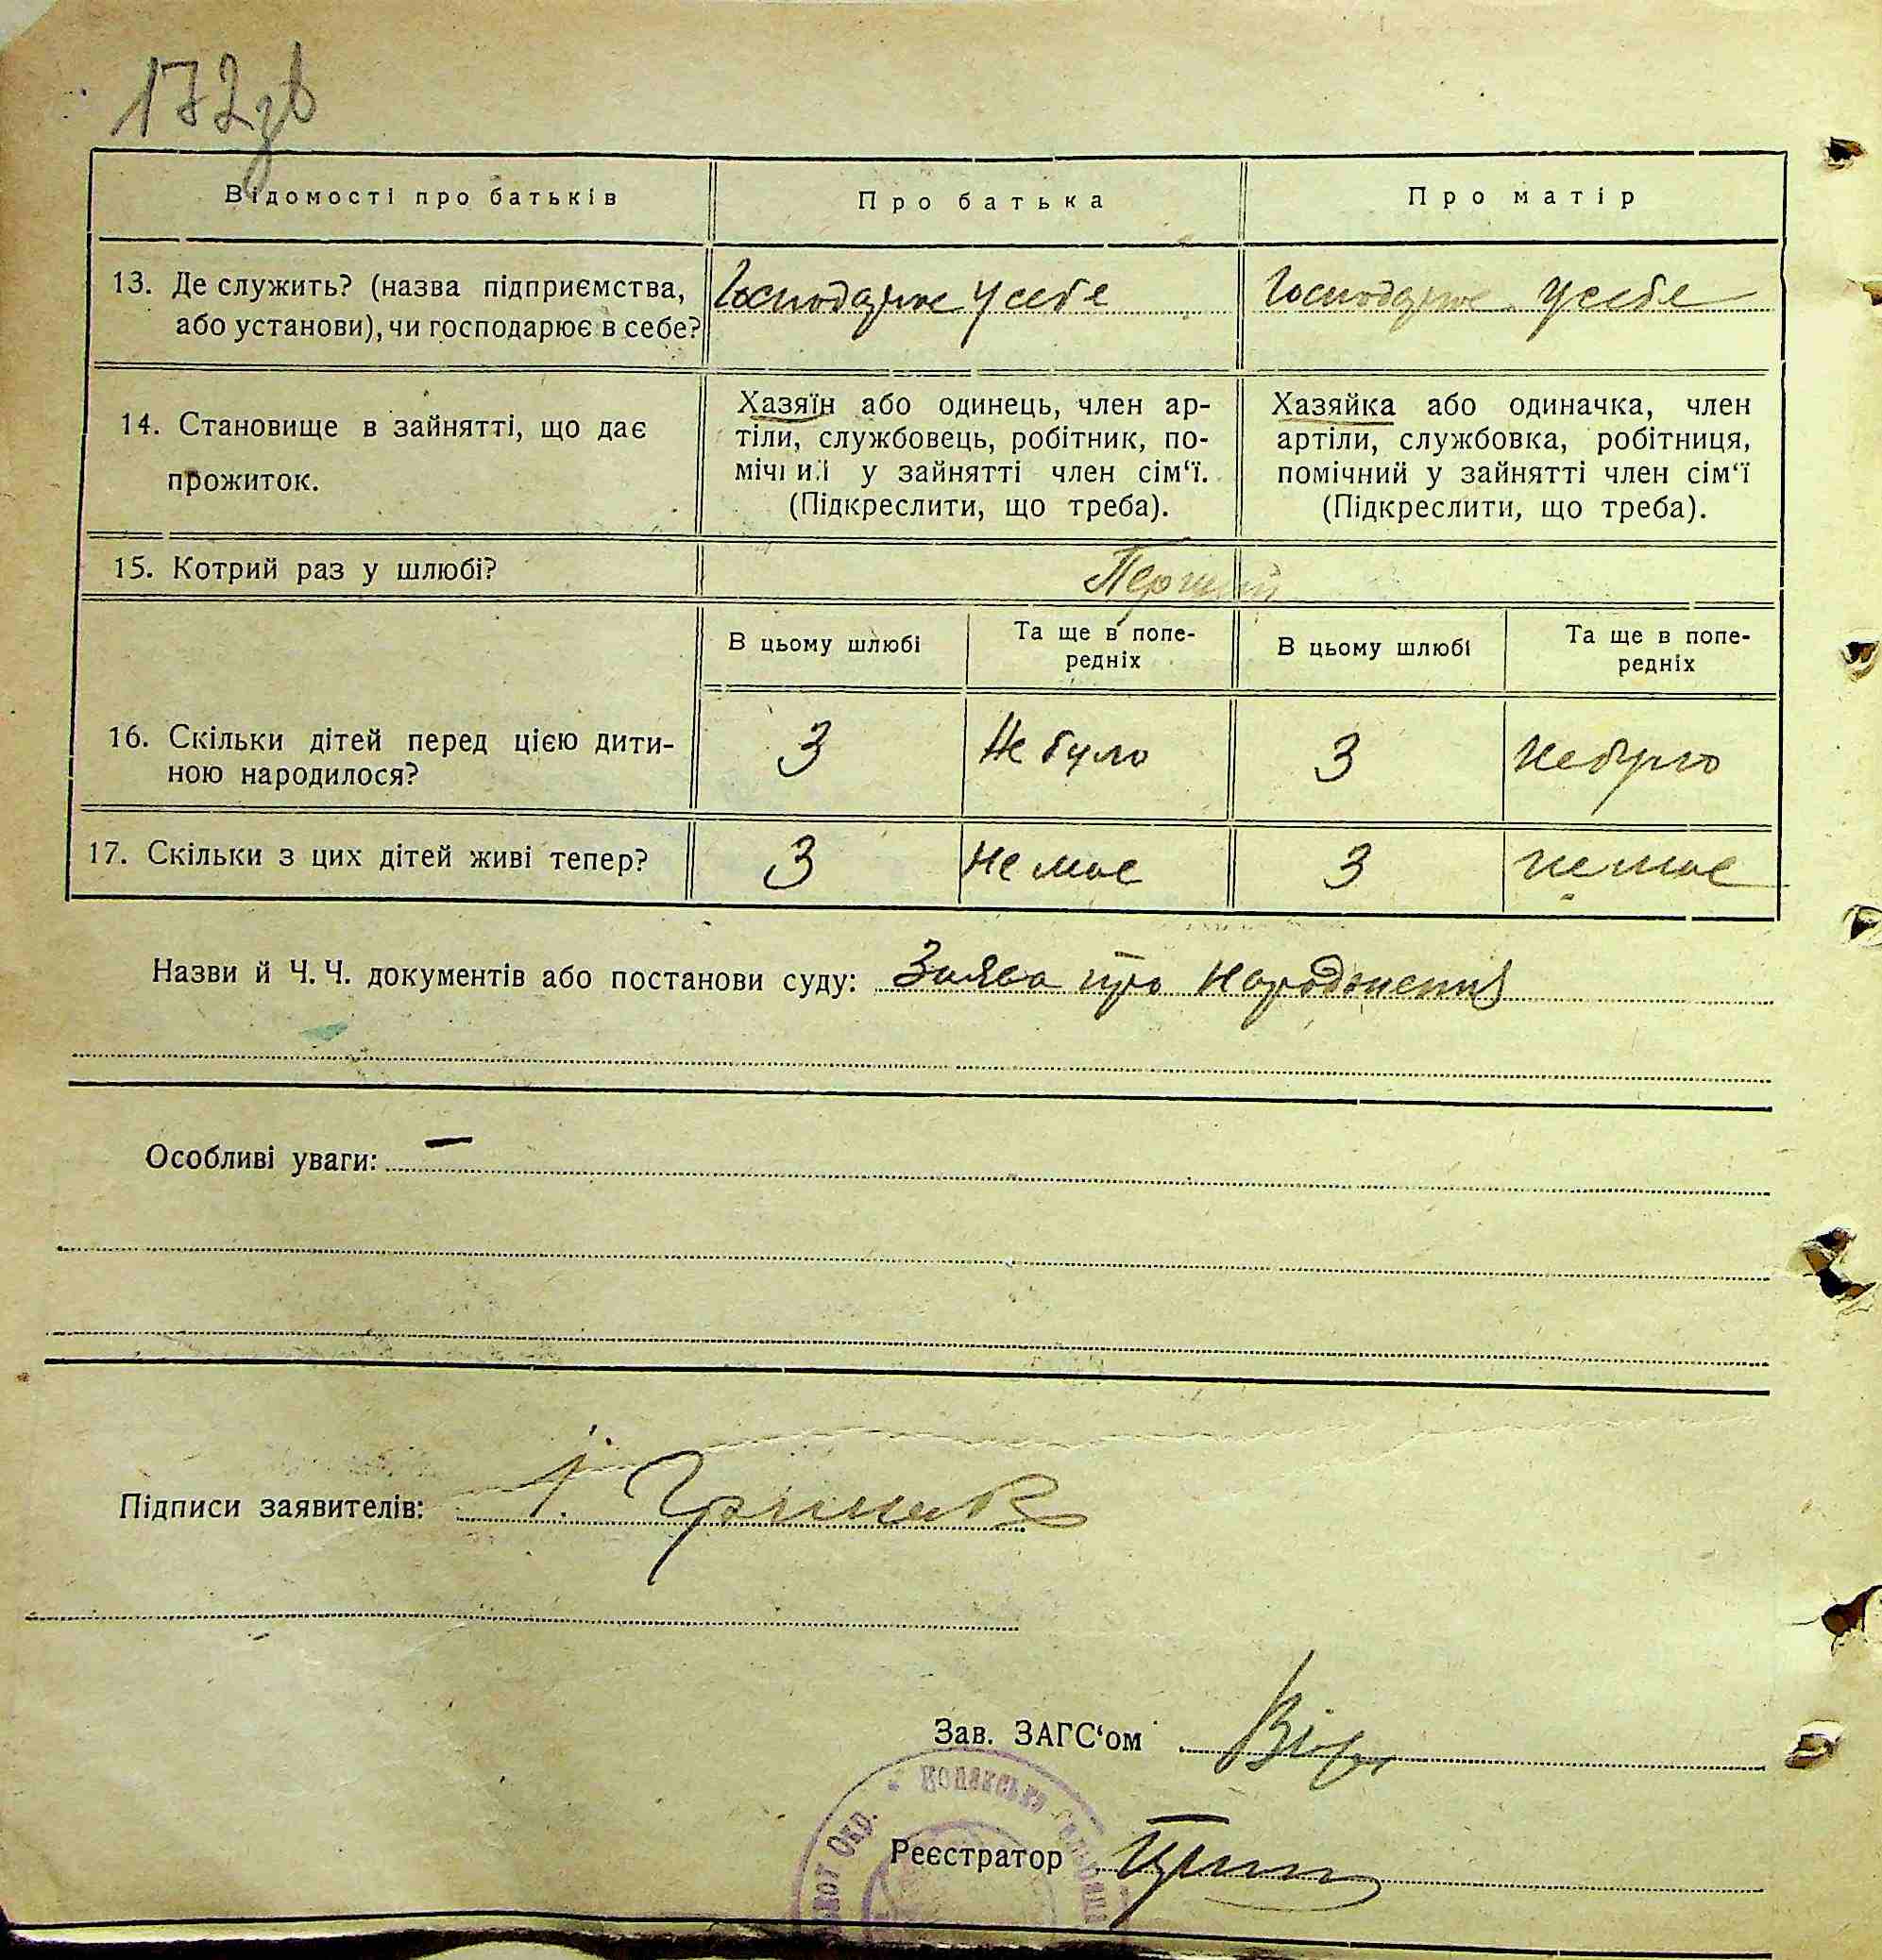 172зв
Відомості про батьків
Про батька
Про матір
13. Де служить? (назва підприємства,
або установи), чи господарює в себе?
Господарює у себе
Господарює у себе
14. Становище в зайнятті, що дає
прожиток.
Хазяїн або одинець, член ар-
тіли, службовець, робітник, по-
мічний у зайнятті член сім‘ї.
(Підкреслити, що треба).
Хазяйка або одиначка, член
артіли, службовка, робітниця,
помічний у зайнятті член сім‘ї
(Підкреслити, що треба).
15. Котрий раз у шлюбі?
Перший
В цьому шлюбі
Та ще в попе-
редніх
В цьому шлюбі
Та ще в попе-
редніх
16. Скільки дітей перед цією дити-
ною народилося?
3
Не було
3
не було
17. Скільки з цих дітей живі тепер?
3
Не має
3
не має
Назви й Ч. Ч. документів або постанови суду: Заява про народження
Особливі уваги: —
Підписи заявителів:
Зав. ЗАГС‘ом
Реєстратор